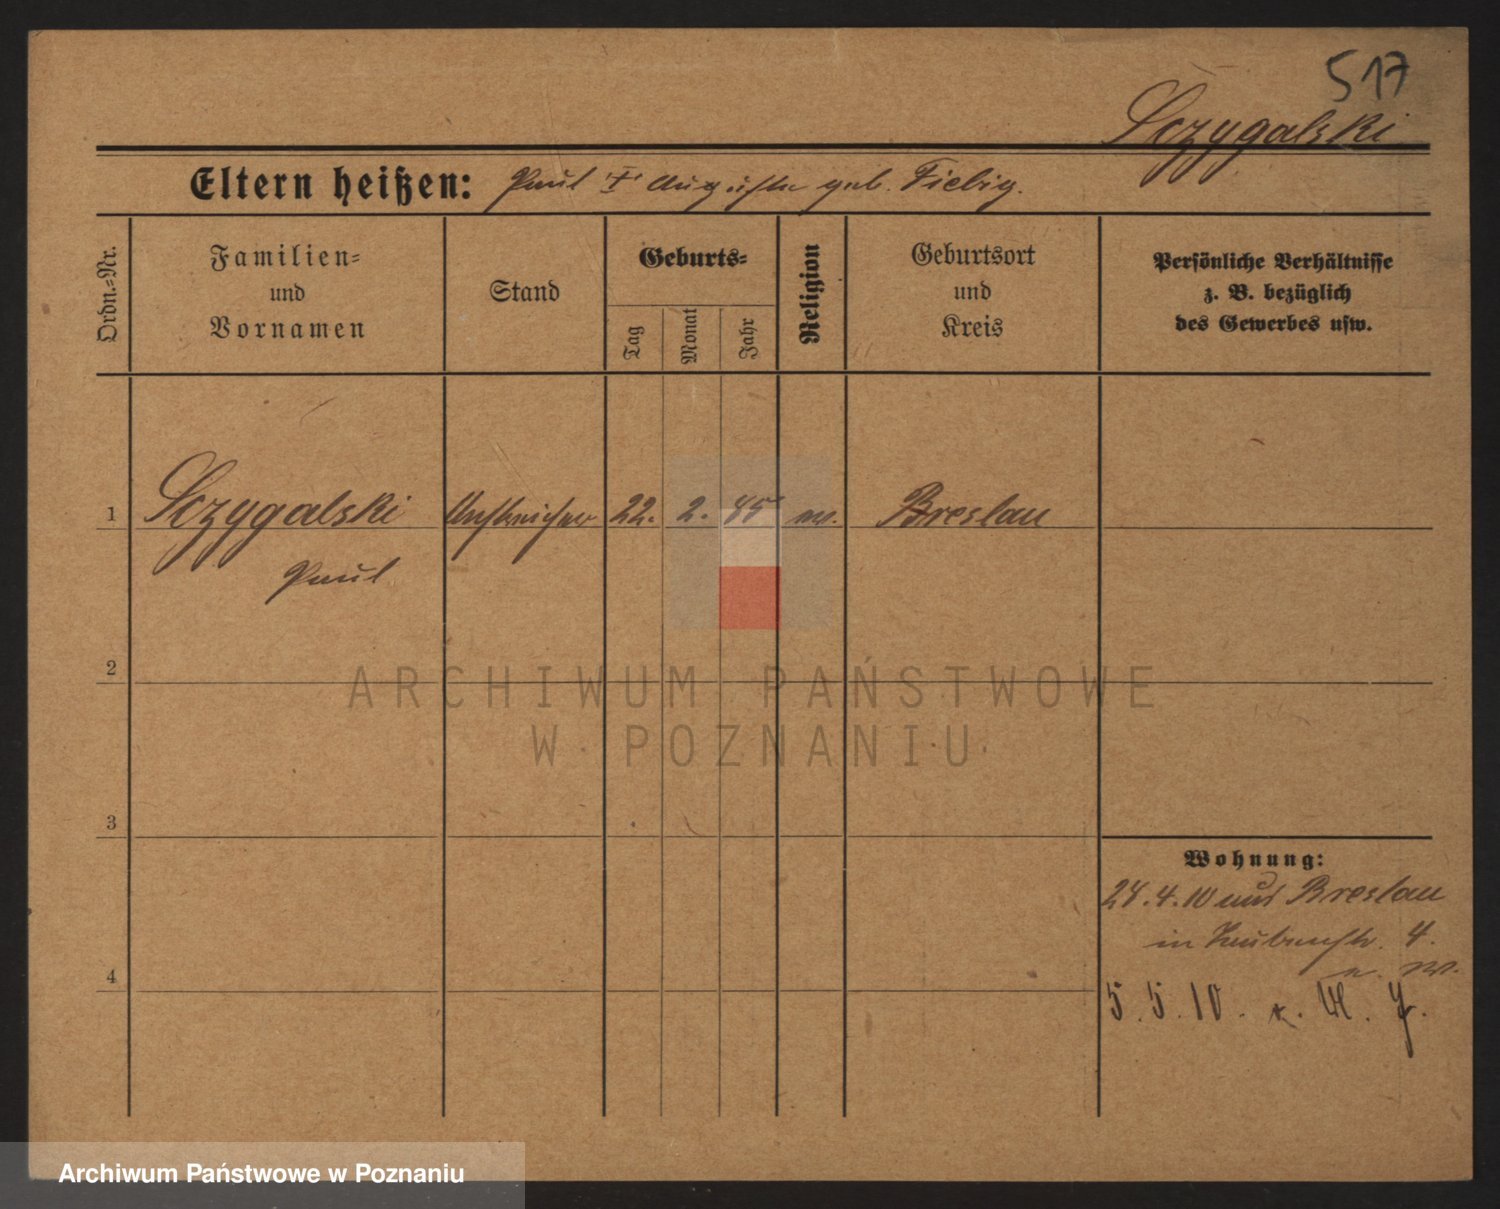 517
Sczygalski
Eltern heißen: Paul † Auguste geb. Fiebig.
Ordn.-Nr.
Familien-
und
Vornamen
Stand
Geburts-
Tag
Monat
Jahr
Religion
Geburtsort
und
Kreis
Persönliche Verhältnisse
z. B. bezüglich
des Gewerbes usw.
1 Sczygalski Anstreicher 22. 2. 85 ev. Breslau
Paul
2
3
4
Wohnung:
28.4.10 aus Breslau
in 4.
5.5.10.
ARCHIWUM PAŃSTWOWE
W POZNANIU
Archiwum Państwowe w Poznaniu